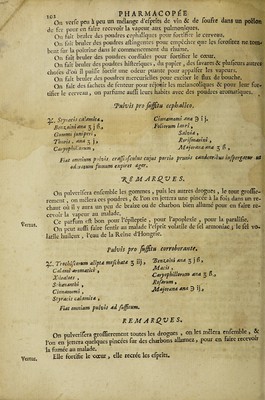 102 PHARMACOPÉE
On verse peu à peu un mélange d'esprits de vin & de soufre dans un poëlon
de fer pour en faire recevoir la vapeur aux pulmoniques.
On fait bruler des poudres cephaliques pour fortifier le cerveau.
On fait bruler des poudres astringentes pour empêcher que les serositez ne tom-
bent sur la poitrine dans le commencement du rhûme.
On fait bruler des poudres cordiales pour fortifier le cœur.
On fait bruler des poudres histeriques, du papier, des savates & plusieurs autres
choses d'où il puisse sortir une odeur puante pour appaiser les vapeurs.
On fait bruler des poudres mercurielles pour exciter le flux de bouche.
On fait des sachets de senteur pour réjouir les melancoliques & pour leur for-
tifier le cerveau, on parfume aussi leurs habits avec des poudres aromatiques.
Pulvis pro suffitu cephalico.
℞. Styracis calamitæ,
Benzoini ana ℥ j ß,
Gummi juniperi,
Thuris, ana ʒ j,
Caryophillorum,
Cinnamomi ana ℈ ij,
Foliorum lauri,
Salviæ,
Rorismarini,
Majoranæ ana ʒ ß,
Fiat omnium pulvis crassiusculus cujus portio prunis candentibus inspergatur ut
odoratum fumum expiret æger.
REMARQUES.
On pulverisera ensemble les gommes, puis les autres drogues, le tout grossie-
rement, on mêlera ces poudres, & l'on en jettera une pincée à la fois dans un re-
chaut où il y aura un peu de braise ou de charbon bien allumé pour en faire re-
cevoir la vapeur au malade.
Vertus.
Ce parfum est bon pour l'épilepsie, pour l'apoplexie, pour la paralisie.
On peut aussi faire sentir au malade l'esprit volatile de sel armoniac, le sel vo-
latile huileux, l'eau de la Reine d'Hongrie.
Pulvis pro suffitu corroborante.
℞. Trochiscorum aliptæ moschatæ ʒ iij,
Calami aromatici,
Xiloaloes,
Schœnanthi,
Cinnamomi,
Styracis calamitæ,
Benzoini ana ʒ ß,
Macis,
Caryophillorum ana ʒ ß,
Rosarum,
Majoranæ ana ℈ ij,
Fiat omnium pulvis ad suffitum.
REMARQUES.
On pulverisera grossierement toutes les drogues, on les mêlera ensemble, &
l'on en jettera quelques pincées sur des charbons allumez, pour en faire recevoir
la fumée au malade.
Vertus.
Elle fortifie le cœur, elle recrée les esprits.